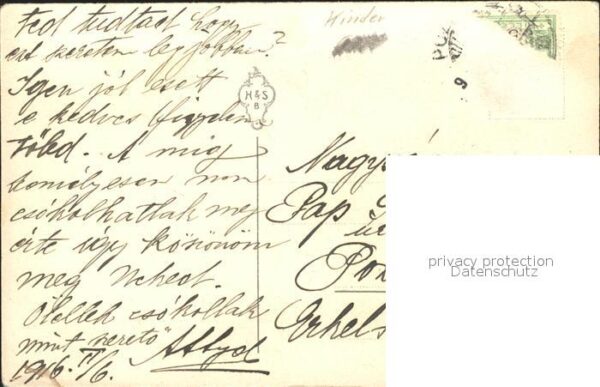 Kinder
Ted tudtad hogy
ezt szeretem legjobban?
Igen jól esett
e kedves figyelmed
A mig
személyesen nem
csókolhatlak meg
érte így köszönöm
meg Neked.
Ölellek csókollak
mint szerető
1916. II/6.
H & S
B
PO
9
Nagys
Pap
Erkels
privacy protection
Datenschutz